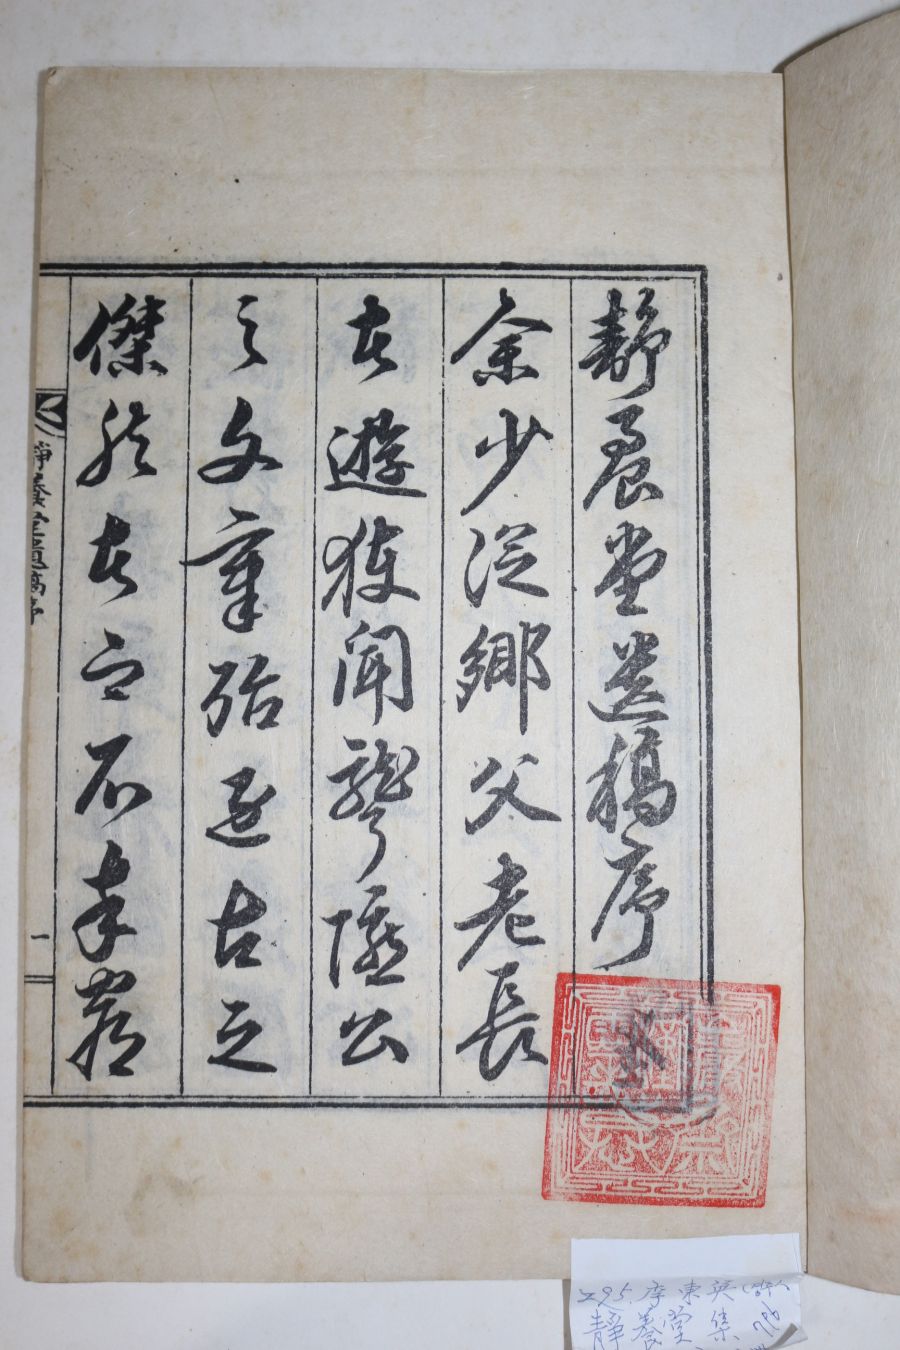 靜養堂遺稿序
余少從鄉父老長
者遊獲聞聾隱公
之文章殆逼古之
傑然者而不幸
一
295.李東英
靜養堂集